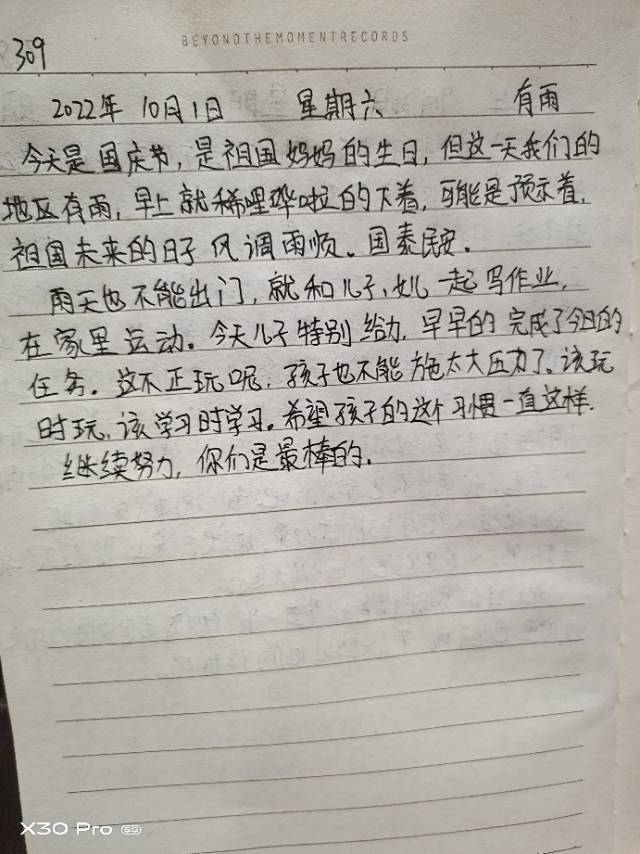 BEYONDTHEMOMENTRECORDS
309
2022年 10月1日 星期六 有雨
今天是国庆节,是祖国妈妈的生日,但这一天我们的
地区有雨,早上就稀哩哗啦的下着,可能是预示着,
祖国未来的日子风调雨顺。国泰民安。
雨天也不能出门,就和儿子、女儿一起写作业,
在家里运动。今天儿子特别给力,早早的完成了今日的
任务。这不正玩呢,孩子也不能施太大压力了。该玩
时玩,该学习时学习。希望孩子的这个习惯一直这样.
继续努力,你们是最棒的.
X30 Pro 5G